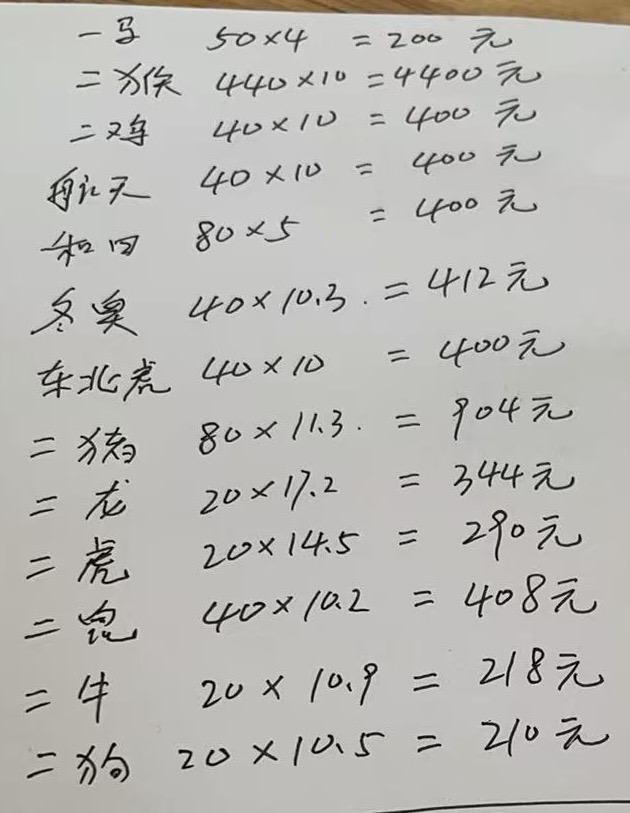 一马 50×4 = 200 元
二猴 440×10 = 4400 元
二鸡 40×10 = 400 元
航天 40×10 = 400 元
和四 80×5 = 400 元
冬奥 40×10.3. = 412元
东北虎 40×10 = 400元
二猪 80×11.3. = 904元
二龙 20×17.2 = 344元
二虎 20×14.5 = 290元
二兔 40×10.2 = 408元
二牛 20×10.9 = 218元
二狗 20×10.5 = 210元